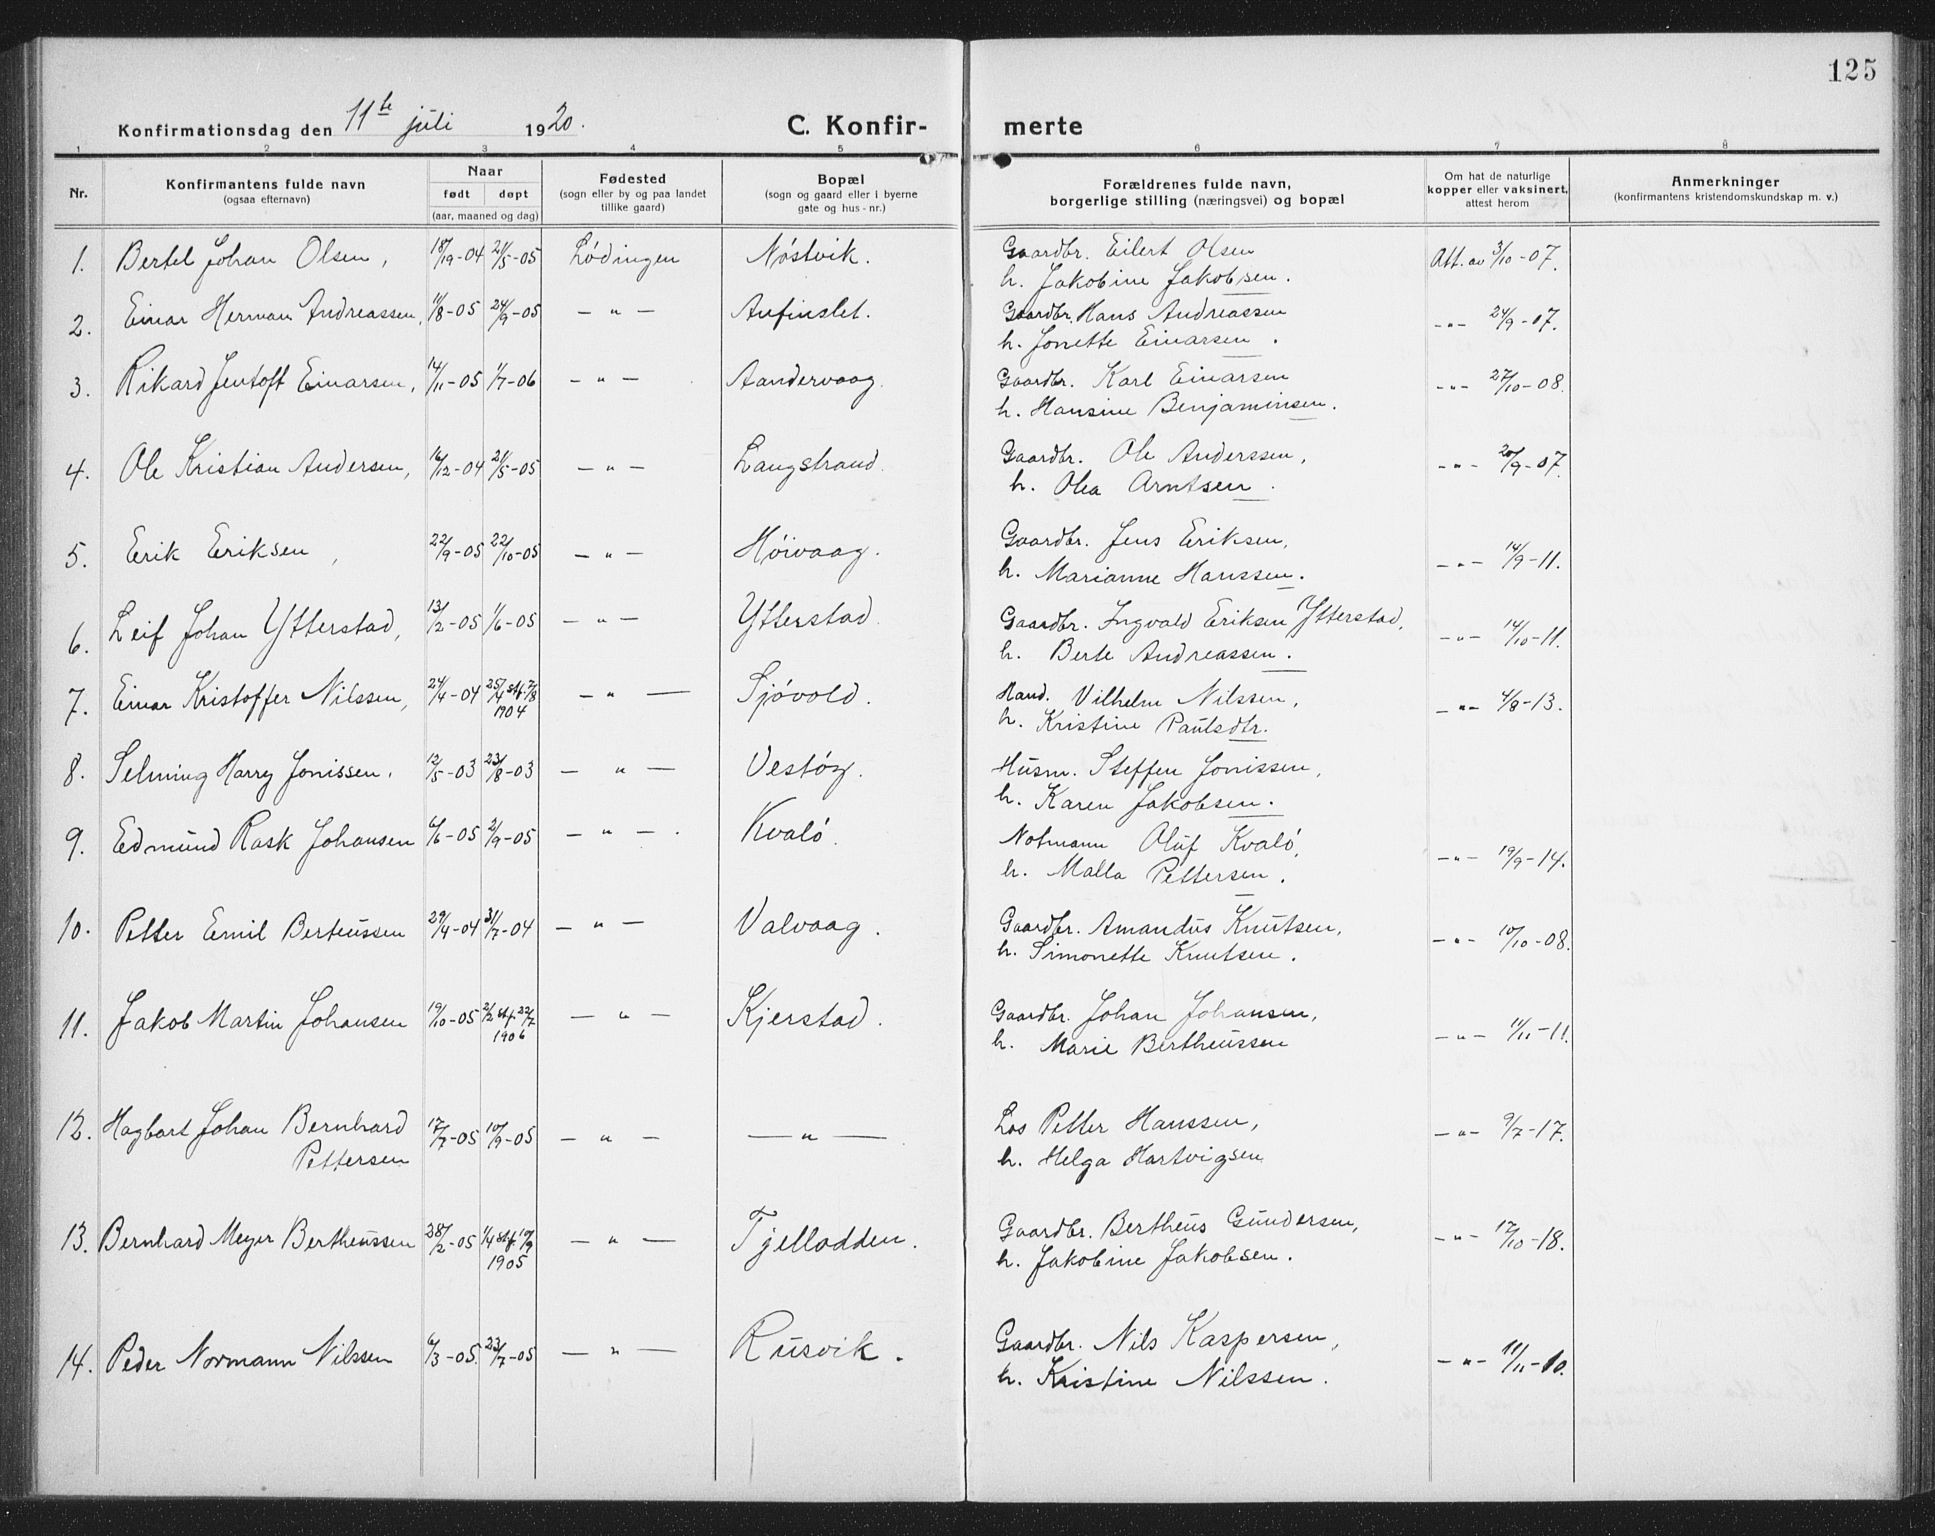 125
Konfirmationsdag den 11te juli 1920.
C. Konfir- merte
1 2 3 4 5 6 7 8
Nr. Konfirmantens fulde navn Naar Fødested Bopæl Forældrenes fulde navn, Om hat de naturlige Anmerkninger
(ogsaa efternavn) født døpt (sogn eller by og paa landet (sogn og gaard eller i byerne borgerlige stilling (næringsvei) og bopæl kopper eller vaksinert, (konfirmantens kristendomskundskap m. v.)
(aar, maaned og dag) tillike gaard) gate og hus-nr.) attest herom
1. Bertel Johan Olsen, 18/19-04 21/5-05 Lödingen Nøstvik. Gaardbr. Eilert Olsen Att. av 3/10-07.
h. Jakobine Jakobsen.
2. Einar Herman Andreassen, 11/8-05 24/9-05 — " — Anfinslet. Gaardbr. Hans Andreassen — " — 24/9-07.
h. Jonette Einarsen.
3. Rikard Jentoft Einarsen, 14/11-05 1/7-06 — " — Aandervaag. Gaardbr. Karl Einarsen — " — 27/10-08.
h. Hansine Benjaminsen.
4. Ole Kristian Andersen, 16/12-04 21/5-05 — " — Langstrand. Gaardbr. Ole Anderssen, — " — 20/9-07.
h. Olea Arntsen.
5. Erik Eriksen, 22/9-05 22/10-05 — " — Høivaag. Gaardbr. Jens Eriksen, — " — 14/9-11.
h. Marianne Hanssen.
6. Leif Johan Ytterstad, 13/2-05 1/6-05 — " — Ytterstad. Gaardbr. Ingvald Eriksen Ytterstad, — " — 14/10-11.
h. Berte Andreassen.
7. Einar Kristoffer Nilssen, 24/4-04 25/4 stf. 7/8 1904 — " — Sjövold. Hand. Vilhelm Nilssen, — " — 4/8-13.
h. Kristine Paulsdtr.
8. Selming Harry Jonissen. 12/5-03 23/8-03 — " — Vestöy. Husm. Steffen Jonissen,
h. Karen Jakobsen.
9. Edmund Rask Johansen 6/6-05 2/9-05 — " —. Kvalö. Notmann Oluf Kvalö, — " — 19/9-14.
h. Malla Pettersen.
10. Petter Emil Berteussen 29/4-04 31/7-04 — " — Valvaag. Gaardbr. Amandus Knutsen, — " — 10/10-08.
h. Simonette Knutsen.
11. Jakob Martin Johansen 19/10-05 2/2 stf. 22/7 1906 — " — Kjerstad. Gaardbr. Johan Johansen, — " — 11/11-11.
h. Marie Bertheussen
12. Hagbart Johan Bernhard 17/7-05 10/9-05 — " — — " — Los Petter Hanssen, — " — 9/7-17.
Pettersen h. Helga Hartvigsen
13. Bernhard Meyer Bertheussen 28/2-05 1/4 stf. 10/9 1905 — " — Tjellodden. Gaardbr. Bertheus Gundersen, — " — 12/10-18.
h. Jakobine Jakobsen.
14. Peder Normann Nilssen 6/3-05. 23/7-05 — " — Rusvik. Gaardbr. Nils Kaspersen, — " — 11/11-10.
h. Kristine Nilssen.